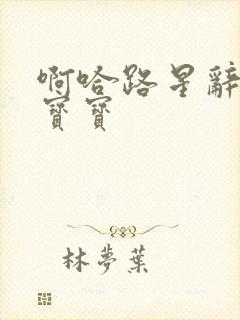 啊哈路星辭
寶寶
林夢葉